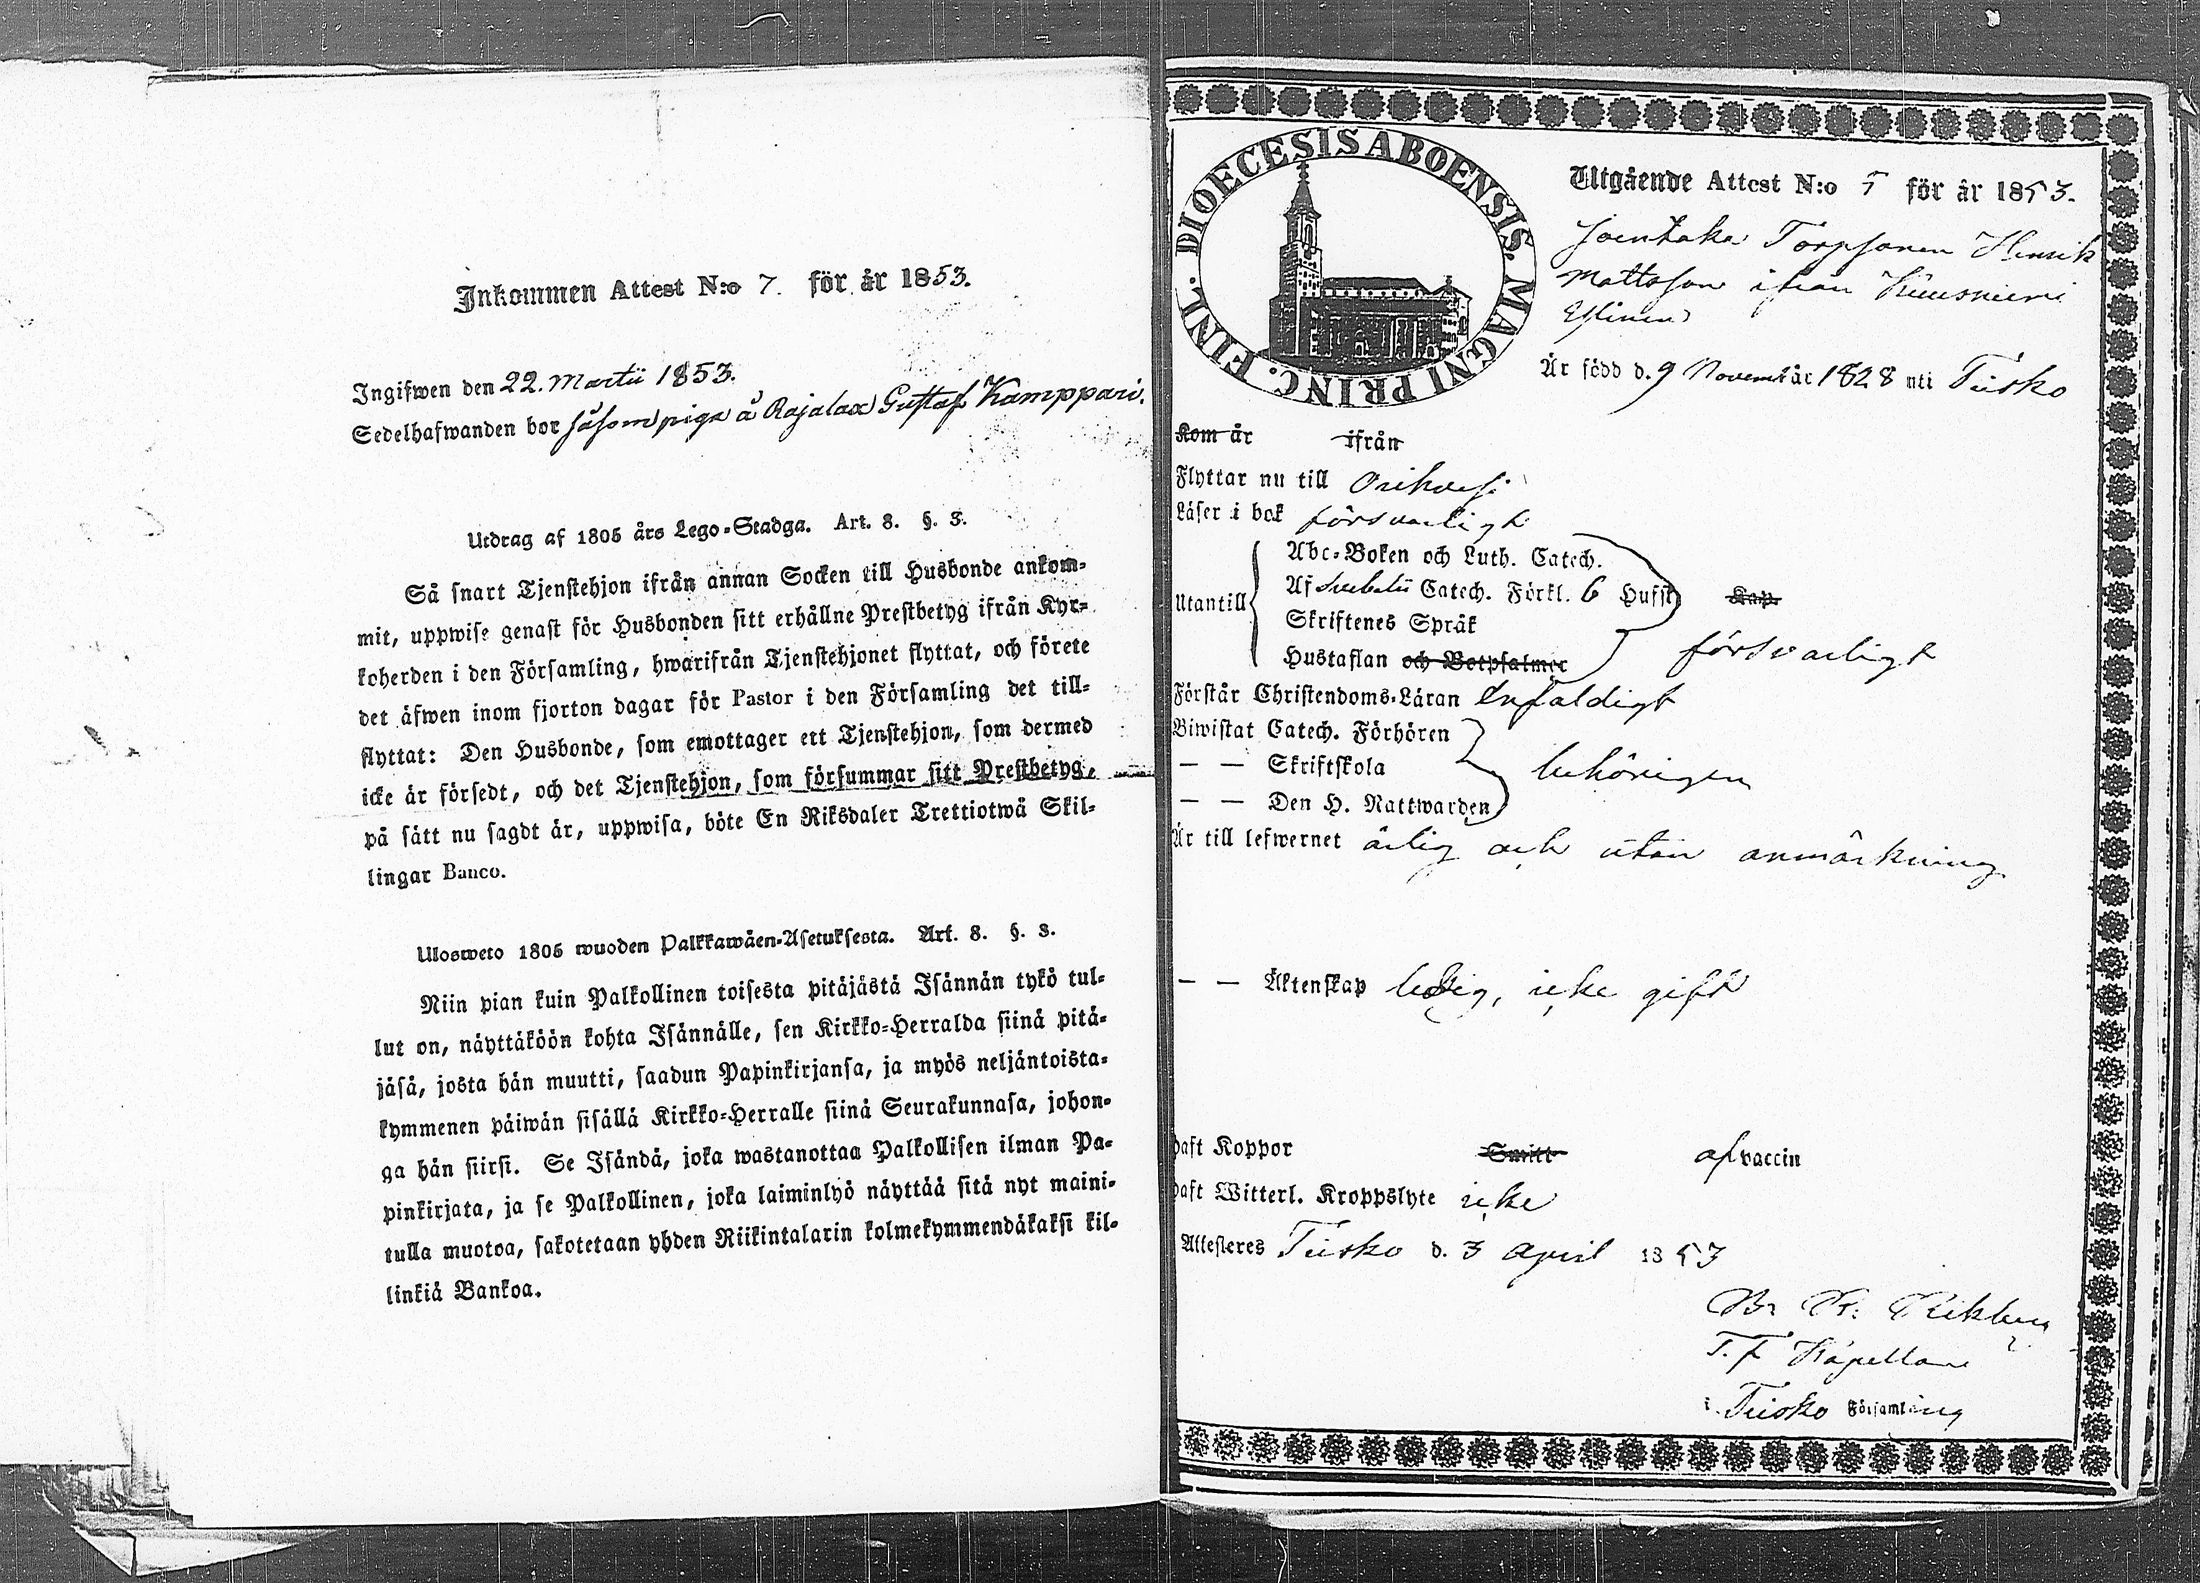 Inkommen Attest N:o 7. för år 1853.
Ingifwen den 22. Martii 1853.
Sedelhafwanden bor såsom piga å Rajalax Gustaf Kamppari.
Utdrag af 1805 års Lego-Stadga. Art. 8. §. 3.
Så snart Tjenstehjon ifrån annan Socken till Husbonde ankom-
mit, uppwise genast för Husbonden sitt erhållne Prestbetyg ifrån Kyr-
koherden i den Församling, hwarifrån Tjenstehjonet flyttat, och förete
det äfwen inom fjorton dagar för Pastor i den Församling det till-
flyttat: Den Husbonde, som emottager ett Tjenstehjon, som dermed
icke är försedt, och det Tjenstehjon, som försummar sitt Prestbetyg,
på sätt nu sagdt är, uppwisa, böte En Riksdaler Trettiotwå Skil-
lingar Banco.
Ulosweto 1805 wuoden Palkkawäen-Asetuksesta. Art. 8. §. 3.
Niin pian kuin Palkollinen toisesta pitäjästä Isännän tykö tul-
lut on, näyttäköön kohta Isännälle, sen Kirkko-Herralda siinä pitä-
jäsä, josta hän muutti, saadun Papinkirjansa, ja myös neljäntoista-
kymmenen päiwän sisällä Kirkko-Herralle siinä Seurakunnasa, johon-
ga hän siirsi. Se Isändä, joka wastanottaa Palkollisen ilman Pa-
pinkirjata, ja se Palkollinen, joka laiminlyö näyttää sitä nyt maini-
tulla muotoa, sakotetaan yhden Riikintalarin kolmekymmendäkaksi kil-
linkiä Bankoa.
DIOECESIS ABOENSIS. MAGNI PRINC. FINL.
Utgående Attest N:o för år 1853.
Torpsonen Henrik
Mattsson ifrån
Är född d. 9 November år 1828 uti Teisko
Kom år ifrån
Flyttar nu till Orihvesi
Läser i bok försvarligt
Utantill
Abc-Boken och Luth. Catech.
Af Svebelii Catech. Förkl. 6 Hufst Kap
Skriftenes Språk
Hustaflan och Botpsalmer försvarligt
Förstår Christendoms-Läran Enfaldigt
Biwistat Catech. Förhören
— — Skriftskola behörigen
— — Den H. Nattwarden
Är till lefwernet ärlig och utan anmärkning
— — Äktenskap ledig, icke gift
haft Koppor Smitt af vaccin
haft Witterl. Kroppslyte icke
Attesteres Teisko d. 3 April 1853
T.f Kapellan
i Teisko Församling